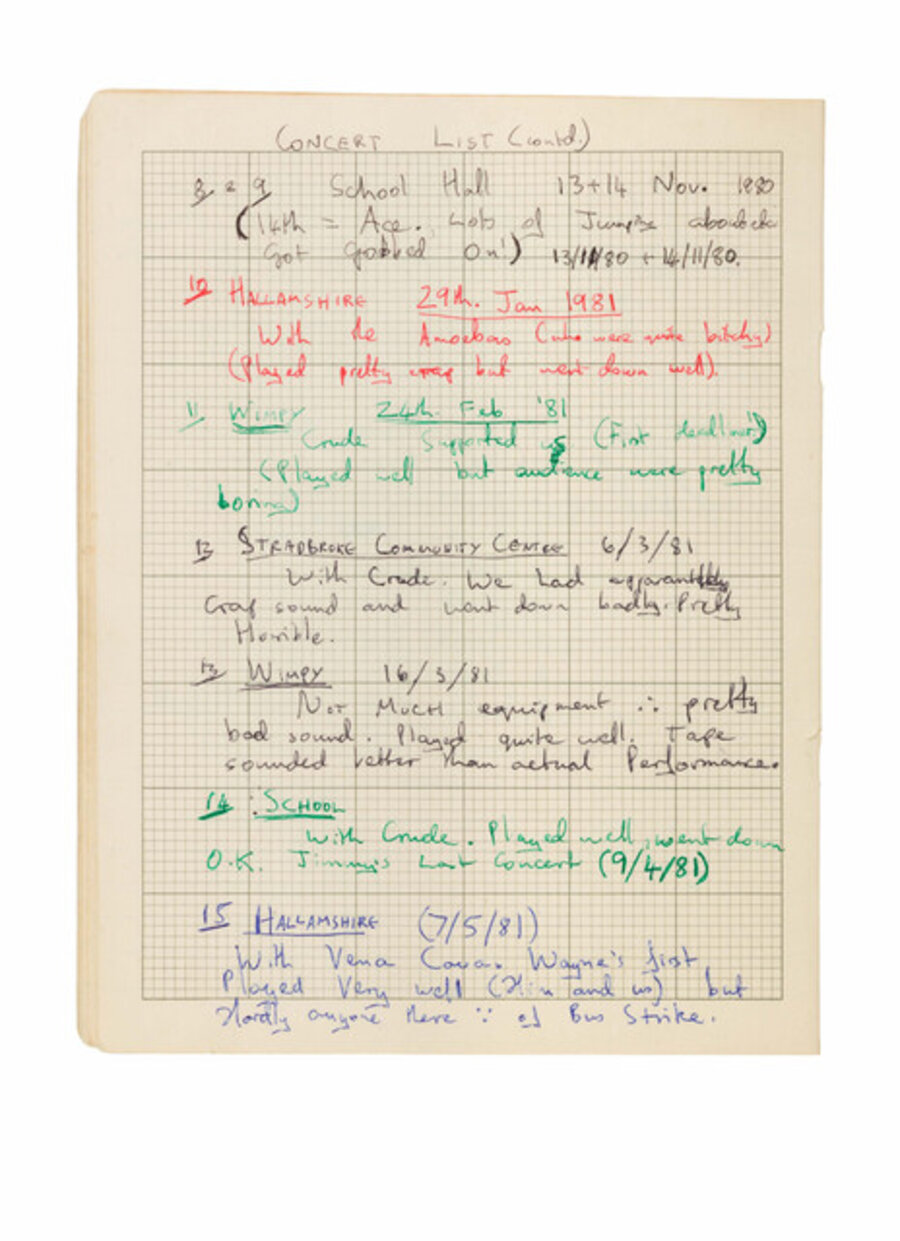 CONCERT LIST (contd.)
8 & 9 School Hall 13+14 Nov. 1980
(14th = Ace. Lots of Jumping about etc
Got grabbed On!) 13/11/80 + 14/11/80.
10 HALLAMSHIRE 29th. Jan 1981
With the Amoebas (who were quite bitchy)
(Played pretty crap but went down well).
11 WIMPY 24th. Feb '81
Crude Supported us (First Headliner!)
(Played well but audience were pretty
boring)
12 STRADBROKE COMMUNITY CENTRE 6/3/81
With Crude. We had apparently
Crap sound and went down badly. Pretty
Horrible.
13 WIMPY 16/3/81
NOT MUCH equipment ∴ pretty
bad sound. Played quite well. Tape
sounded better than actual Performance.
14 : SCHOOL
With Crude. Played well, went down
O.K. Jimmy's Last Concert (9/4/81)
15 HALLAMSHIRE (7/5/81)
With Vena Cava. Wayne's first
Played Very well (Him and us) but
Hardly anyone there ∵ of Bus Strike.